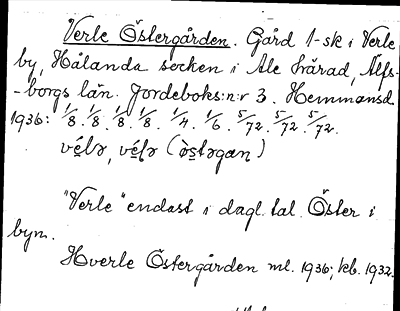 Verle Östergården. Gård 1-sk i Verle
by, Hålanda socken i Ale härad, Älfs-
-borgs län. Jordeboks:n:r 3. Hemmansd
1936: 1/8. 1/8. 1/8. 1/8. 1/4. 1/6. 5/72. 5/72. 5/72.
"Verle" endast i dagl. tal. Öster i
byn.
Hverle Östergården ml. 1936; kb. 1932.